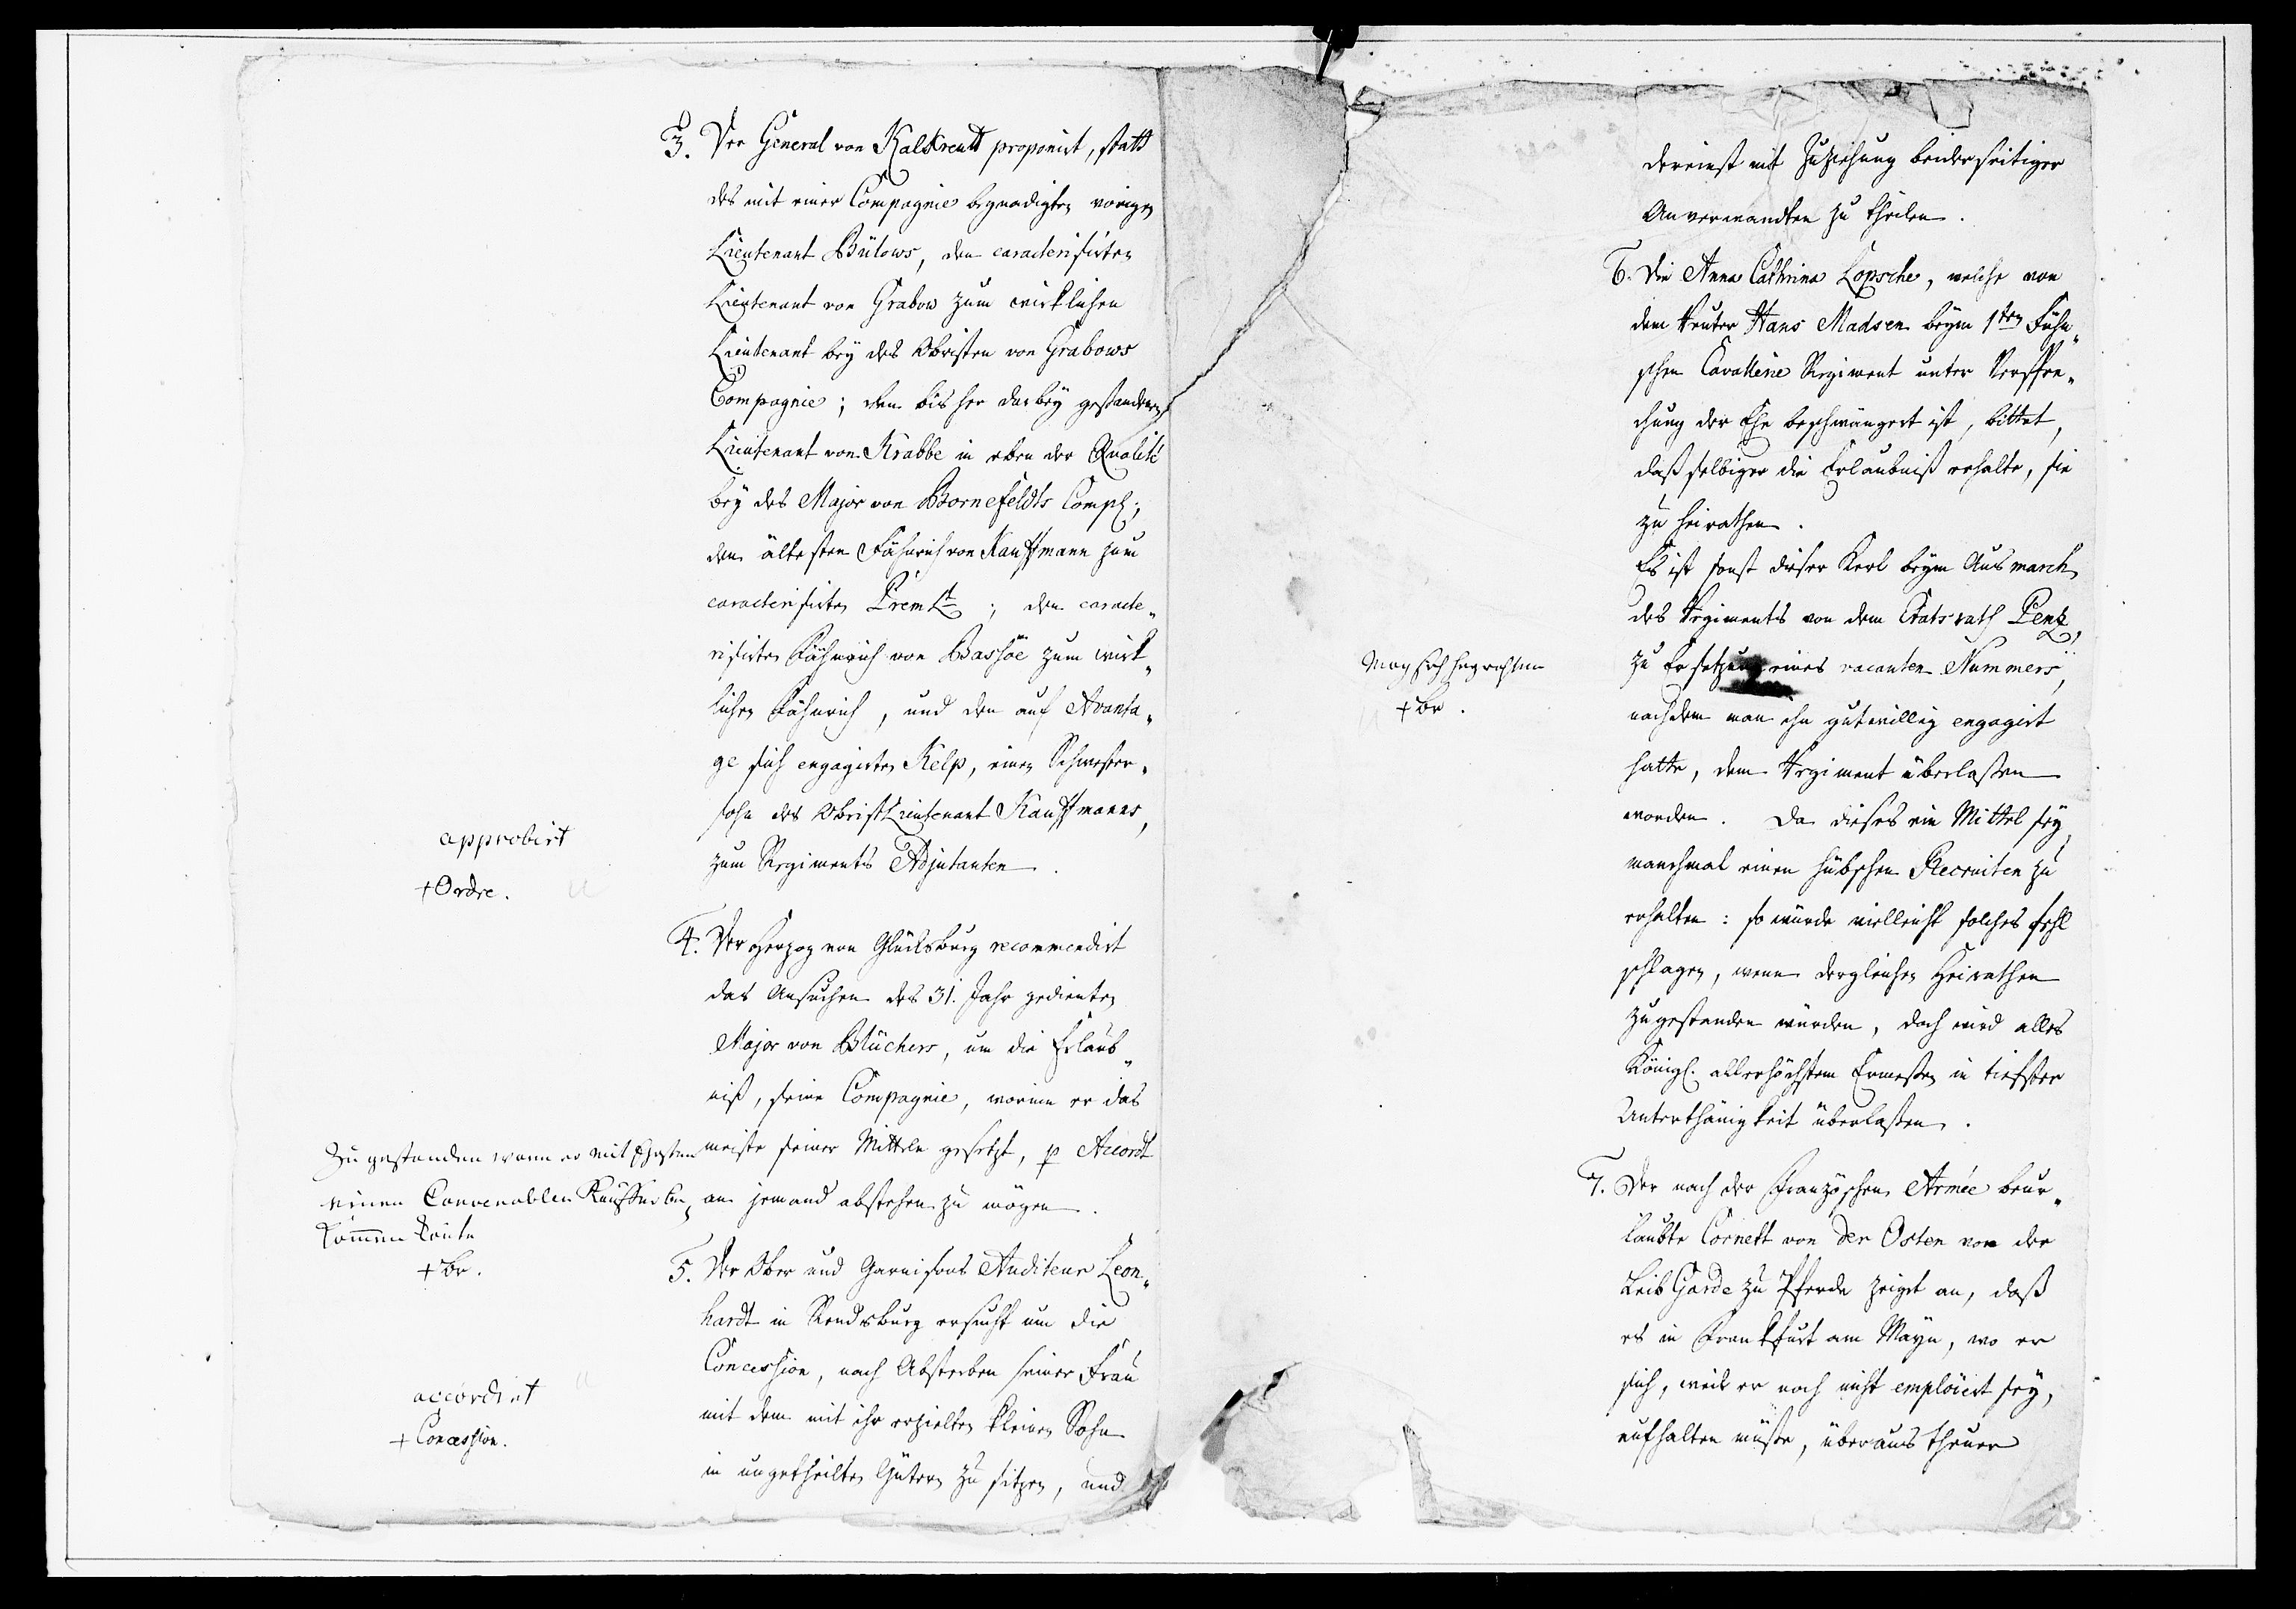 3. Der General von Kalckreutt proponirt, statt
des mit einer Compagnie begnadigten vorigen
Lieutenant Bülows, den caracterisirten
Lieutenant von Grabow zum wirklichen
Lieutenant bey des Obristen von Grabows
Compagnie; den bisher darbey gestandenen
Lieutenant von Krabbe in eben der Qualité
bey des Major von Bornefeldts Comp:;
den ältesten Fähnrich von Kauffmann zum
caracterisirten Prem Lt; den caracte„
risirten Fähnrich von Bassöe zum wirk„
lichen Fähnrich, und den auf Avanta„
ge sich engagirten Kelp, einen Schwester„
sohn des Obrist Lieutenant Kauffmanns,
zum Regiments Adjutanten.
approbirt
+ Ordre.
4. Der Herzog von Glücksburg recommendirt
das Ansuchen des 31. Jahr gedienten
Major von Blüchers, um die Erlaub„
niß, seine Compagnie, worinn er das
meiste seiner Mitteln gesetzt, p Accordt
an jemand abstehen zu mögen.
Zugestanden wann er mit
einen Convenablen Kauffer
kommen könte
+ br.
5. Der Ober und Garnisons Auditeur Leon„
hardt in Rendsburg ersucht um die
Concession, nach Absterben seiner Frau
mit dem mit ihr erzielten kleinen Sohn
in ungetheilten Gütern zu sitzen, und
accordirt
+ Concession.
dereinst mit Zuziehung beiderseitiger
Anverwandten zu theilen.
6. Die Anna Cathrina Lopsche, welche von
dem Reuter Hans Madsen beym 1ten Fühn„
schen Cavallerie Regiment unter Verspre„
chung der Ehe beschwängert ist, bittet,
daß selbiger die Erlaubniß erhalte, sie
zu heirathen.
Es ist sonst dieser Kerl beym Ausmarch
des Regiments von dem Etatsrath Pentz,
zu Ersetzung eines vacanten Nummers,
nachdem man ihn gutwillig engagirt
hatte, dem Regiment überlaßen
worden. Da dieses ein Mittel sey,
manchmal einen hübschen Recruiten zu
erhalten: so würde vielleicht solches fehl
schlagen, wenn dergleichen Heirathen
zugestanden würden, doch wird alles
Königl. allerhöchstem Ermeßen in tiefster
Unterthänigkeit überlaßen.
Mag sich
+ br.
7. Der nach der Französchen Armée beur„
laubte Cornett von der Osten von der
Leib Garde zu Pferde zeiget an, daß
es in Frankfurt am Mayn, wo er
sich, weil er noch nicht emploiert sey,
aufhalten müßte, überaus theuer